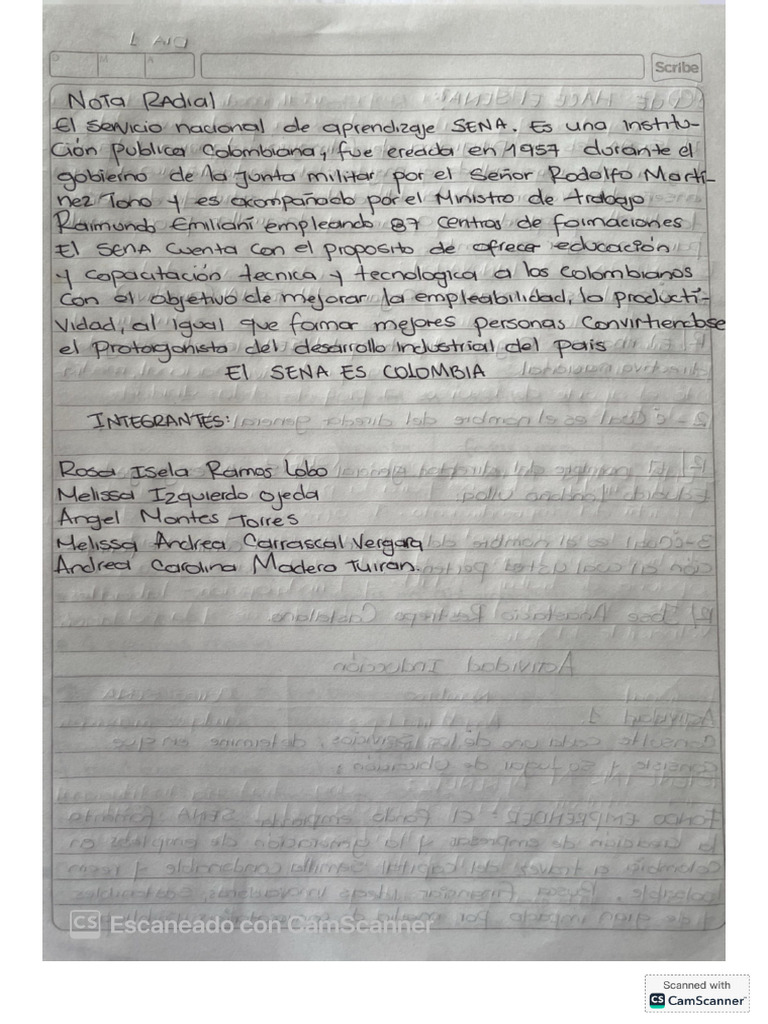 Scribe
NOTA RADIAL
El servicio nacional de aprendizaje SENA. Es una institu-
ción publica Colombiana, fue creada en 1957 durante el
gobierno de la Junta militar por el Señor Rodolfo Martí-
nez Tono y es acompañado por el Ministro de trabajo
Raimundo Emiliani empleando 87 centros de formaciones
El SENA cuenta con el proposito de ofrecer educación
y capacitación tecnica y tecnologica a los colombianos
con el objetivo de mejorar la empleabilidad, la producti-
vidad, al igual que formar mejores personas Convirtiendose
el Protargonista del desarrollo industrial del pais
El SENA ES COLOMBIA
INTEGRANTES:
Rosa Isela Ramos Lobo
Melissa Izquierdo Ojeda
Angel Montes Torres
Melissa Andrea Carrascal Vergara
Andrea Carolina Madero Tuiran.
CS Escaneado con CamScanner
Scanned with
CS CamScanner